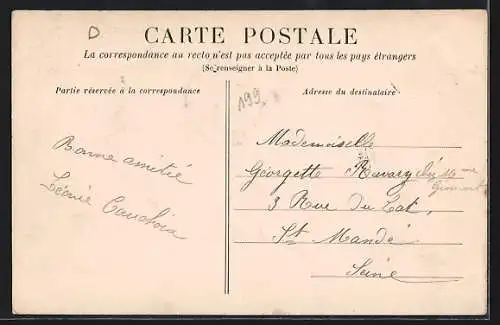 D
CARTE POSTALE
La correspondance au recto n'est pas acceptée par tous les pays étrangers
(Se renseigner à la Poste)
Partie réservée à la correspondance
199
Adresse du destinataire
Bonne amitié
Léonie Cauchois
Mademoiselle
Georgette
3 Rue du Lac,
St Mandé
Seine